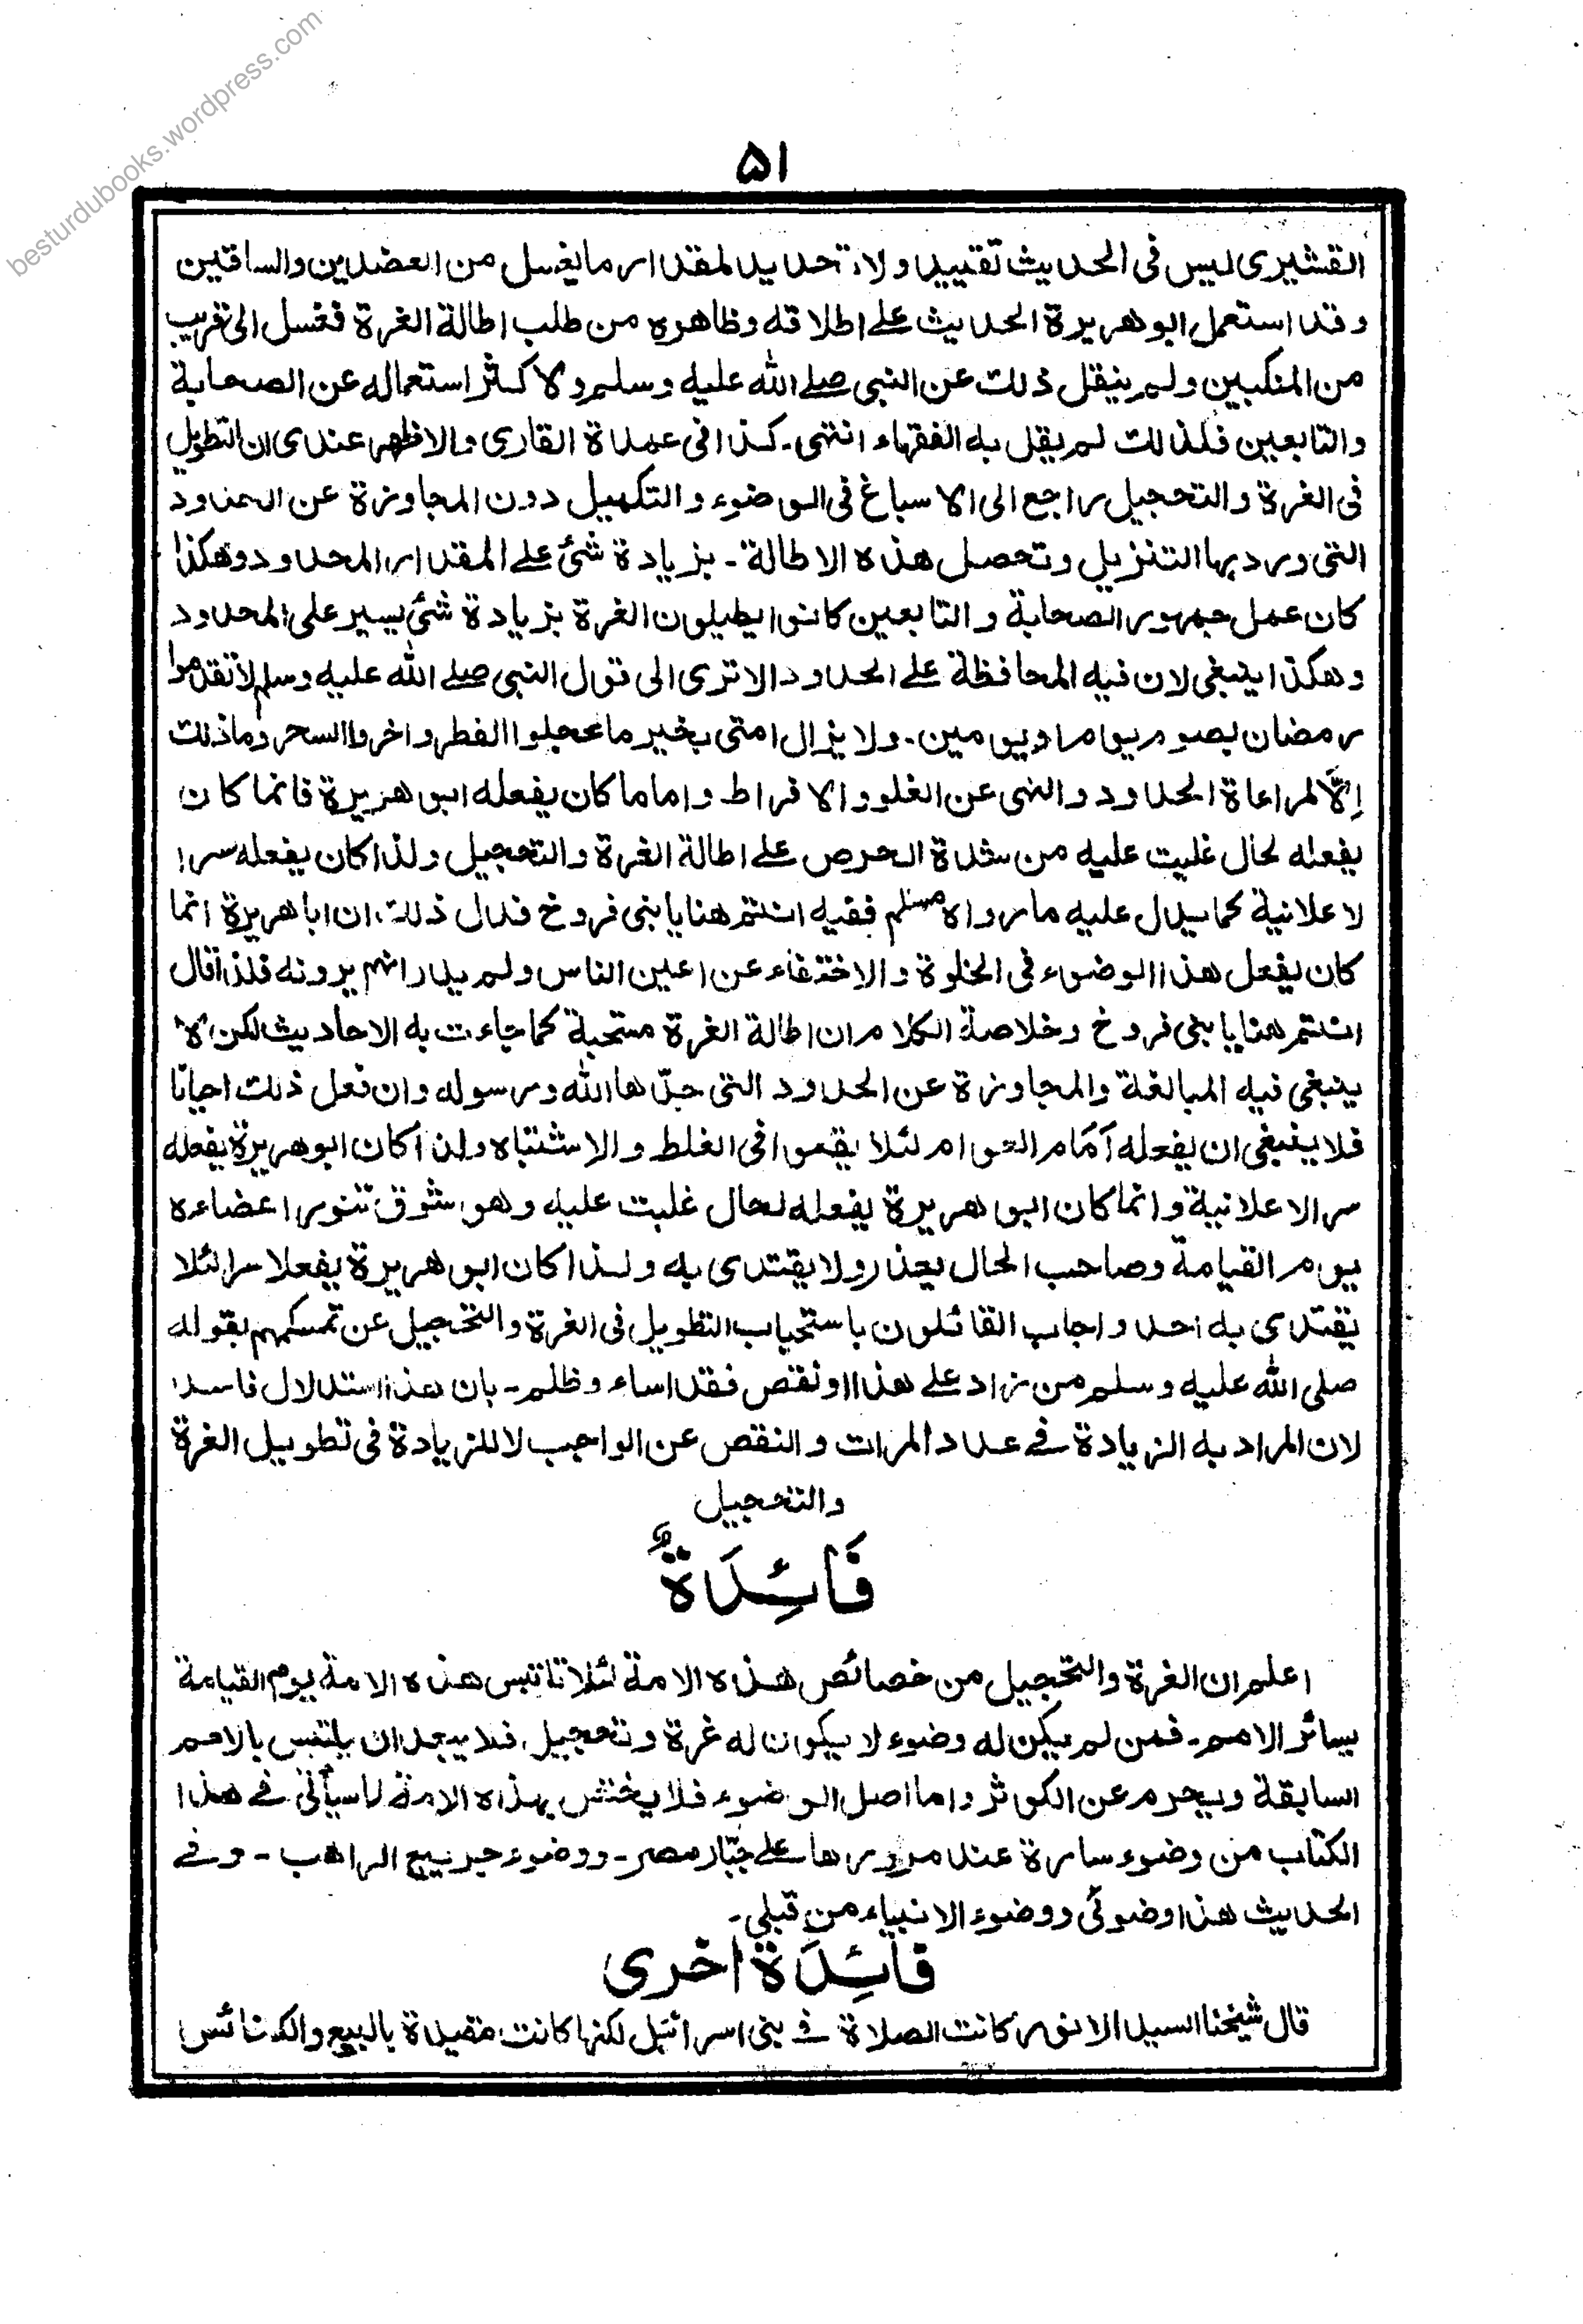 besturdubooks.wordpress.com
۵۱
القشیری لیس فی الحدیث تقیید ولا تحدید لمقدار ما یغسل من العضدین والساقین
وقد استعمل ابو هریرة الحدیث علے اطلاقه وظاهره من طلب اطالة الغرة فغسل الی قریب
من المنکبین ولم ینقل ذلت عن النبی صلے الله علیه وسلم ولا کثر استعماله عن الصحابة
والتابعین فلذلت لم یقل به الفقهاء انتهی۔ کذا فی عمدة القاری والاظهر عندی ان التطویل
فی الغرة والتحجیل راجع الی الاسباغ فی الوضوء والتکمیل دون المجاوزة عن الحدود
التی ورد بها التنزیل وتحصل هذه الاطالة۔ بزیادة شئ علے المقدار المحدود وهکذا
کان عمل جمهور الصحابة والتابعین کانوا یطیلون الغرة بزیادة شئ یسیر علی المحدود
وهکذا ینبغی لان فیه المحافظة علے الحدود الا تری الی قول النبی صلے الله علیه وسلم لا تقدموا
رمضان بصوم یوم او یومین۔ ولا یزال امتی بخیر ما عجلوا الفطر واخروا السحر وماذلت
اِلَّا لمراعاة الحدود والنهی عن الغلو والافراط واما ما کان یفعله ابو هریرة فانما کان
یفعله لحال غلبت علیه من شدة الحرص علے اطالة الغرة والتحجیل ولذا کان یفعله سرا
لا علانیة کما یدل علیه ما رواه مسلم ففیه انتم هنا یا بنی فروخ فدل ذلت ان ابا هریرة انما
کان یفعل هذا الوضوء فی الخلوة والاختفاء عن اعین الناس ولم یدر انهم یرونه فلذا قال
انتم هنا یا بنی فروخ وخلاصة الکلام ان اطالة الغرة مستحبة کما جاءت به الاحادیث لکن لا
ینبغی فیه المبالغة والمجاوزة عن الحدود التی حدّها الله ورسوله وان فعل ذلت احیانًا
فلا ینبغی ان یفعله اَمَام العوام لئلا یقعوا فی الغلط والاشتباه ولذا کان ابو هریرة یفعله
سرا لا علانیة وانما کان ابو هریرة یفعله لحال غلبت علیه وهو شوق تنور اعضاءه
یوم القیامة وصاحب الحال یعذر ولا یقتدی به ولذا کان ابو هریرة یفعلا سرا لئلا
یقتدی به احد واجاب القائلون باستحباب التطویل فی الغرة والتحجیل عن تمسکهم بقوله
صلی الله علیه وسلم من زاد علے هذا او نقص فقد اساء وظلم۔ بان هذا استدلال فاسد
لان المراد به الزیادة فے عدد المرات والنقص عن الواجب لا للزیادة فی تطویل الغرة
والتحجیل
فَائِدَةٌ
اعلم ان الغرة والتحجیل من خصائص هذه الامة لئلا تلتبس هذه الامة یوم القیامة
بسائر الامم۔ فمن لم یکن له وضوء لا یکون له غرة وتحجیل، فلا یبعد ان یلتبس بالامم
السابقة ویحرم عن الکوثر واما اصل الوضوء فلا یختص بهذه الامة لما سیأتی فے هذا
الکتاب من وضوء سارة عند مرورها علے جبّار مصر۔ ووضوء جریج الراهب۔ وفے
الحدیث هذا وضوئی ووضوء الانبیاء من قبلی۔
فائِدَة اخری
قال شیخنا السید الانور کانت الصلاة فے بنی اسرائیل لکنها کانت مقیدة بالبیع والکنائس